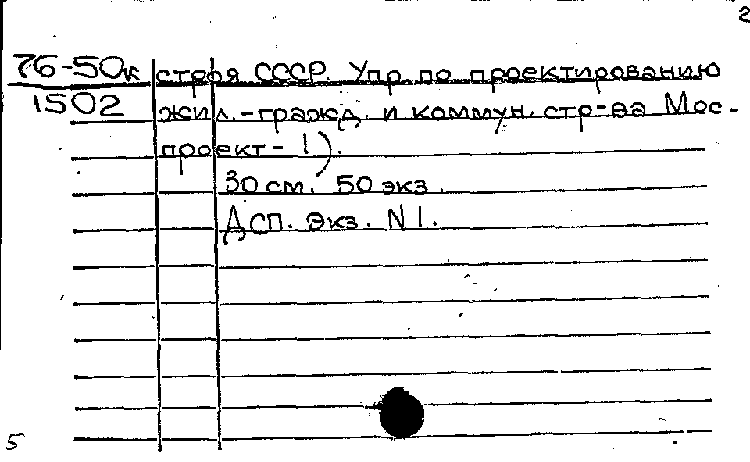 2
76-50к строя СССР. Упр. по проектированию
1502 жил.-гражд. и коммун. стр-ва Мос-
проект-1).
30 см. 50 экз.
Дсп. Экз. N1.
5